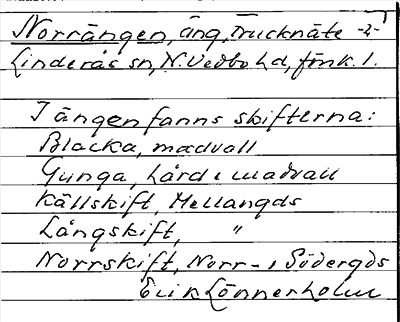 Norrängen, äng, Trucknäte -2-
Linderås sn, N. Vedbo hd, Jönk. l.
I ängen fanns skifterna:
Blacka, madvall
Gunga, hård & madvall
Källskift, Mellangds
Långskift, "
Norrskift, Norr- & Södergds
Erik Lönnerholm